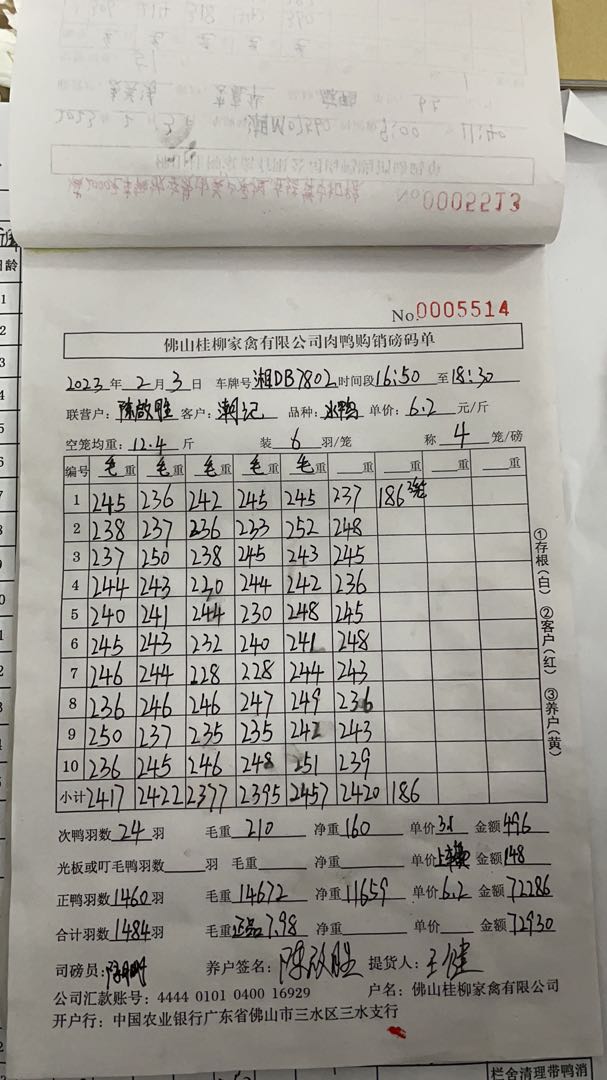 No 0005513
No.0005514
佛山桂柳家禽有限公司肉鸭购销磅码单
2023年 2月 3日 车牌号湘DB7802时间段16:50 至18:30
联营户：陈啟胜 客户：潮记 品种：水鸭 单价：6.2 元/斤
空笼均重：12.4 斤 装 6 羽/笼 称 4 笼/磅
编号 毛重 毛重 毛重 毛重 毛重 重 重 重 重
1 245 236 242 245 245 237 186
2 238 237 236 233 252 248
3 237 250 238 245 243 245
4 244 243 230 244 242 236
5 240 241 244 230 248 245
6 245 243 232 240 241 248
7 246 244 228 228 244 243
8 236 246 246 247 249 236
9 250 237 235 235 242 243
10 236 245 246 248 251 239
小计 2417 2422 2377 2395 2457 2420 186
①存根(白) ②客户(红) ③养户(黄)
次鸭羽数 24 羽 毛重 210 净重 160 单价 3.1 金额 496
光板或叮毛鸭羽数 羽 毛重 净重 单价 金额 148
正鸭羽数 1460 羽 毛重 14672 净重 11659 单价 6.2 金额 72286
合计羽数 1484 羽 毛重 正品7.98 净重 单价 金额 72930
司磅员： 养户签名：陈啟胜 提货人：王健
公司汇款账号：4444 0101 0400 16929 户名：佛山桂柳家禽有限公司
开户行：中国农业银行广东省佛山市三水区三水支行
栏舍清理带鸭消